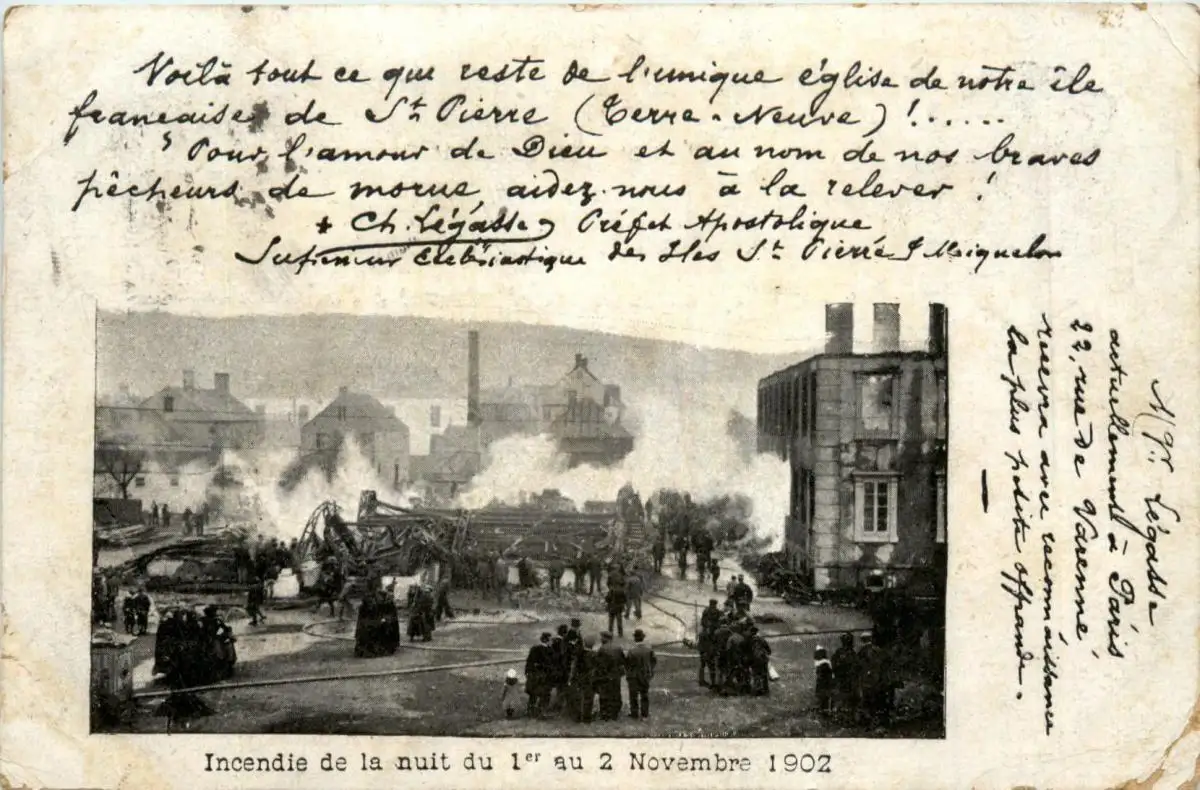 Voilà tout ce que reste de l'unique église de notre île
francaise de St Pierre (Terre-Neuve) !......
" Pour l'amour de Dieu et au nom de nos braves
pêcheurs de morue, aidez-nous à la relever !
+ Ch. Légasse, Préfet Apostolique
Supérieur Ecclésiastique des Iles St Pierre & Miquelon
Mgr Légasse
actuellement à Paris
22, rue de Varenne,
recevra avec reconnaissance
la plus petite offrande.
Incendie de la nuit du 1er au 2 Novembre 1902